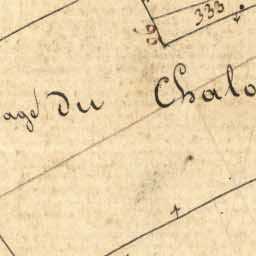 333
agé du Chalo